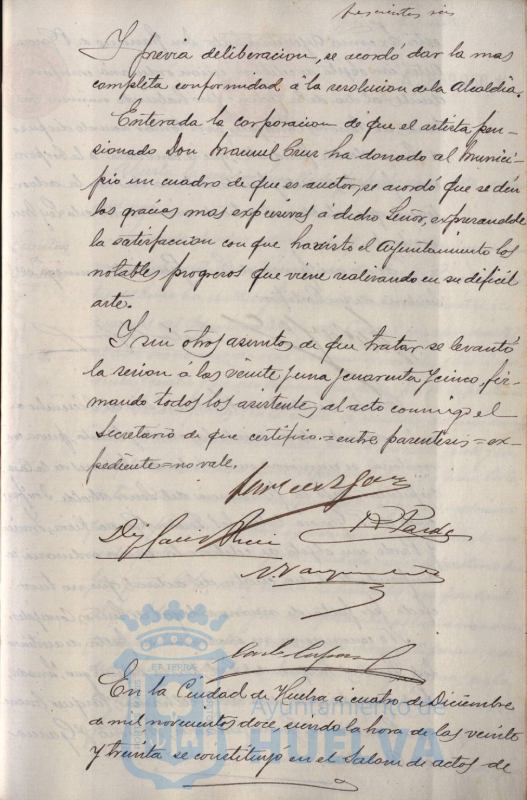 Y previa deliberacion, se acordó dar la mas
completa conformidad á la resolucion de la Alcaldia.
Enterada la corporacion de que el artista pen-
sionado Don Manuel Cruz ha donado al Munici-
pio un cuadro de que es auctor, se acordó que se den
las gracias mas expresivas á dicho Señor, expresandole
la satisfaccion con que ha visto el Ayuntamiento los
notables progresos que viene realizando en su dificil
arte.
Y sin otros asuntos de que tratar se levantó
la sesion á las veinte y una y cuarenta y cinco, fir-
mando todos los asistentes al acto conmigo el
Secretario de que certifico.=entre parentesis=ex-
pediente=no vale.
R. Pardo
ET TERRÆ
Ayuntamiento de
HUELVA
En la Ciudad de Huelva á cuatro de Diciembre
de mil novecientos doce, siendo la hora de las veinte
y treinta se constituyó en el Salon de actos de